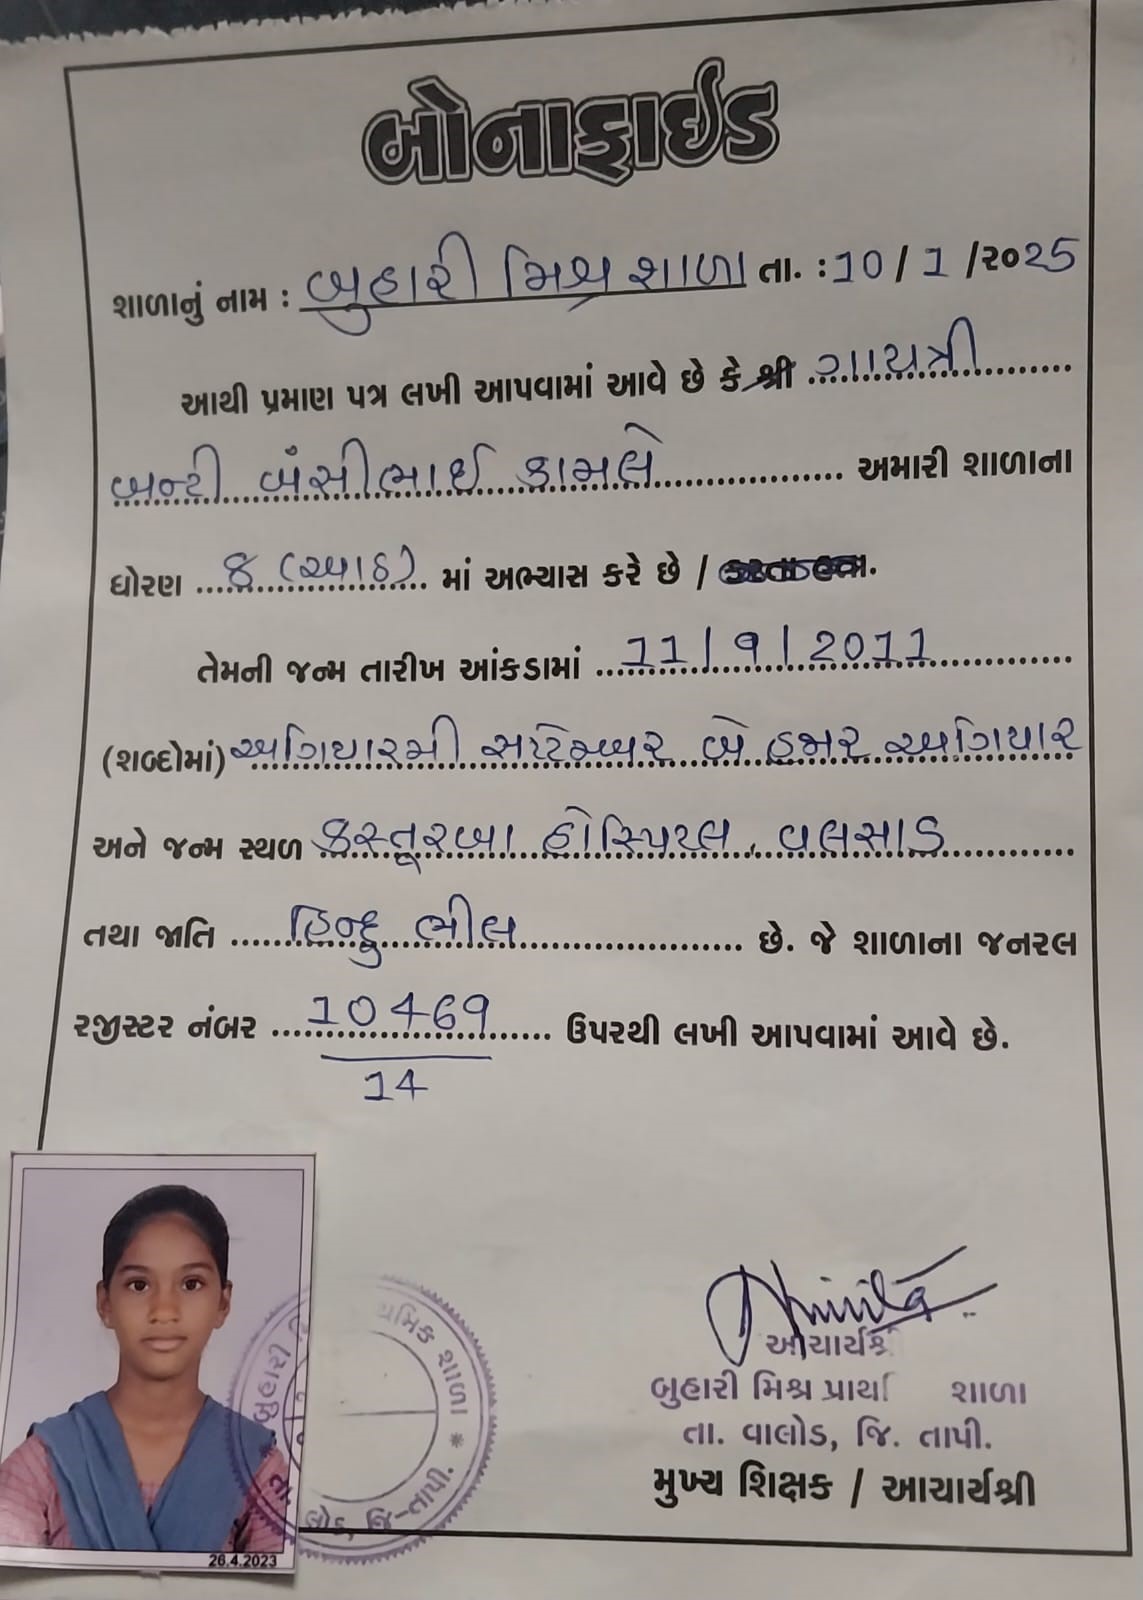 બોનાફાઈડ
શાળાનું નામ : બુહારી મિશ્ર શાળા તા. : 10 / 1 /૨૦25
આથી પ્રમાણ પત્ર લખી આપવામાં આવે છે કે શ્રી ગાયત્રી
બન્ટી બંસીભાઈ કામલે અમારી શાળાના
ધોરણ ૮ (આઠ) માં અભ્યાસ કરે છે / કરતા હતા.
તેમની જન્મ તારીખ આંકડામાં 11 / 9 / 2011
(શબ્દોમાં) અગિયારમી સપ્ટેમ્બર બે હજાર અગિયાર
અને જન્મ સ્થળ કસ્તૂરબા હોસ્પિટલ, વલસાડ
તથા જાતિ હિન્દુ ભીલ છે. જે શાળાના જનરલ
રજીસ્ટર નંબર 10469 ઉપરથી લખી આપવામાં આવે છે.
14
આચાર્યશ્રી
બુહારી મિશ્ર પ્રાથ શાળા
તા. વાલોડ, જિ. તાપી.
મુખ્ય શિક્ષક / આચાર્યશ્રી
બુહારી થમિક શાળા * લોડ, જિ-તાપી.
26.4.2023